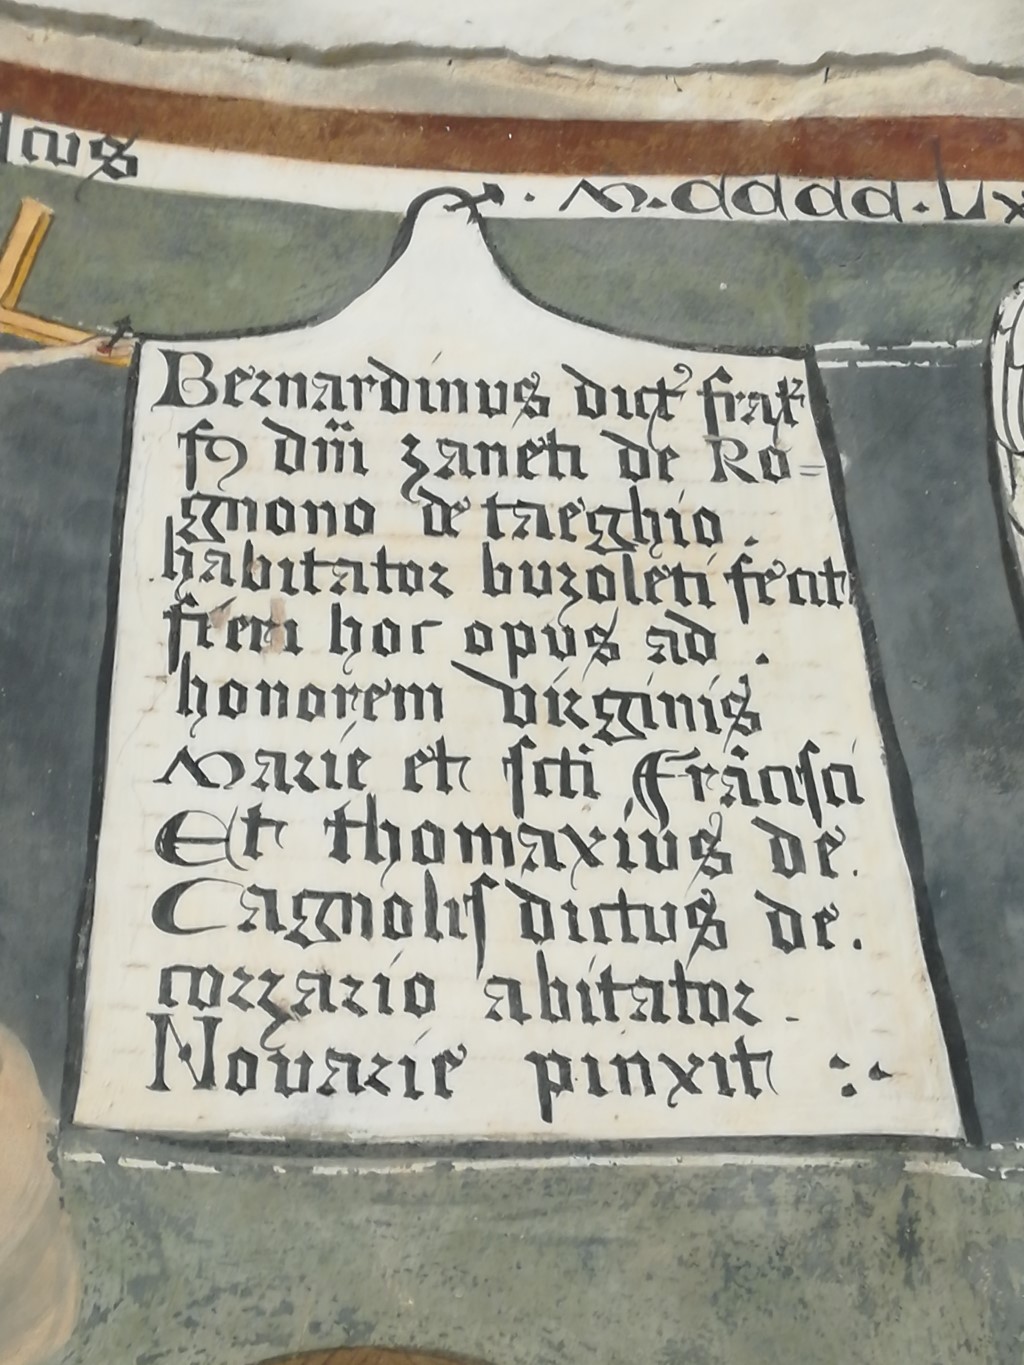 cus
· M·dddd·Lx
Bernardinus dict' frat'
fq dn̄i zaneti de Ro=
gnono de taeghio .
habitator buzoleti fecit
fieri hoc opus ad .
honorem virginis
Marie et scti Frācisci
Et thomaxius de.
Cagnolis dictus de.
cozzario abitator .
Novarie pinxit :·